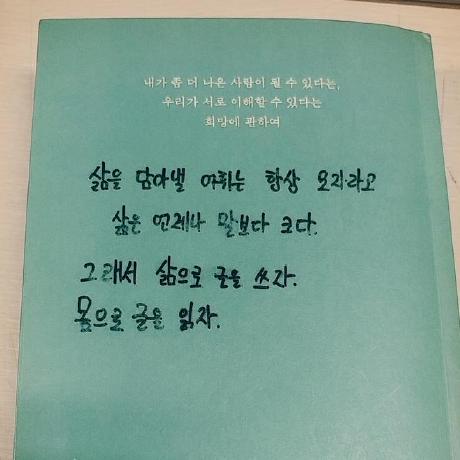 내가 좀 더 나은 사람이 될 수 있다는,
우리가 서로 이해할 수 있다는
희망에 관하여
삶을 담아낼 어휘는 항상 모자라고
삶은 언제나 말보다 크다.
그래서 삶으로 글을 쓰자.
몸으로 글을 읽자.